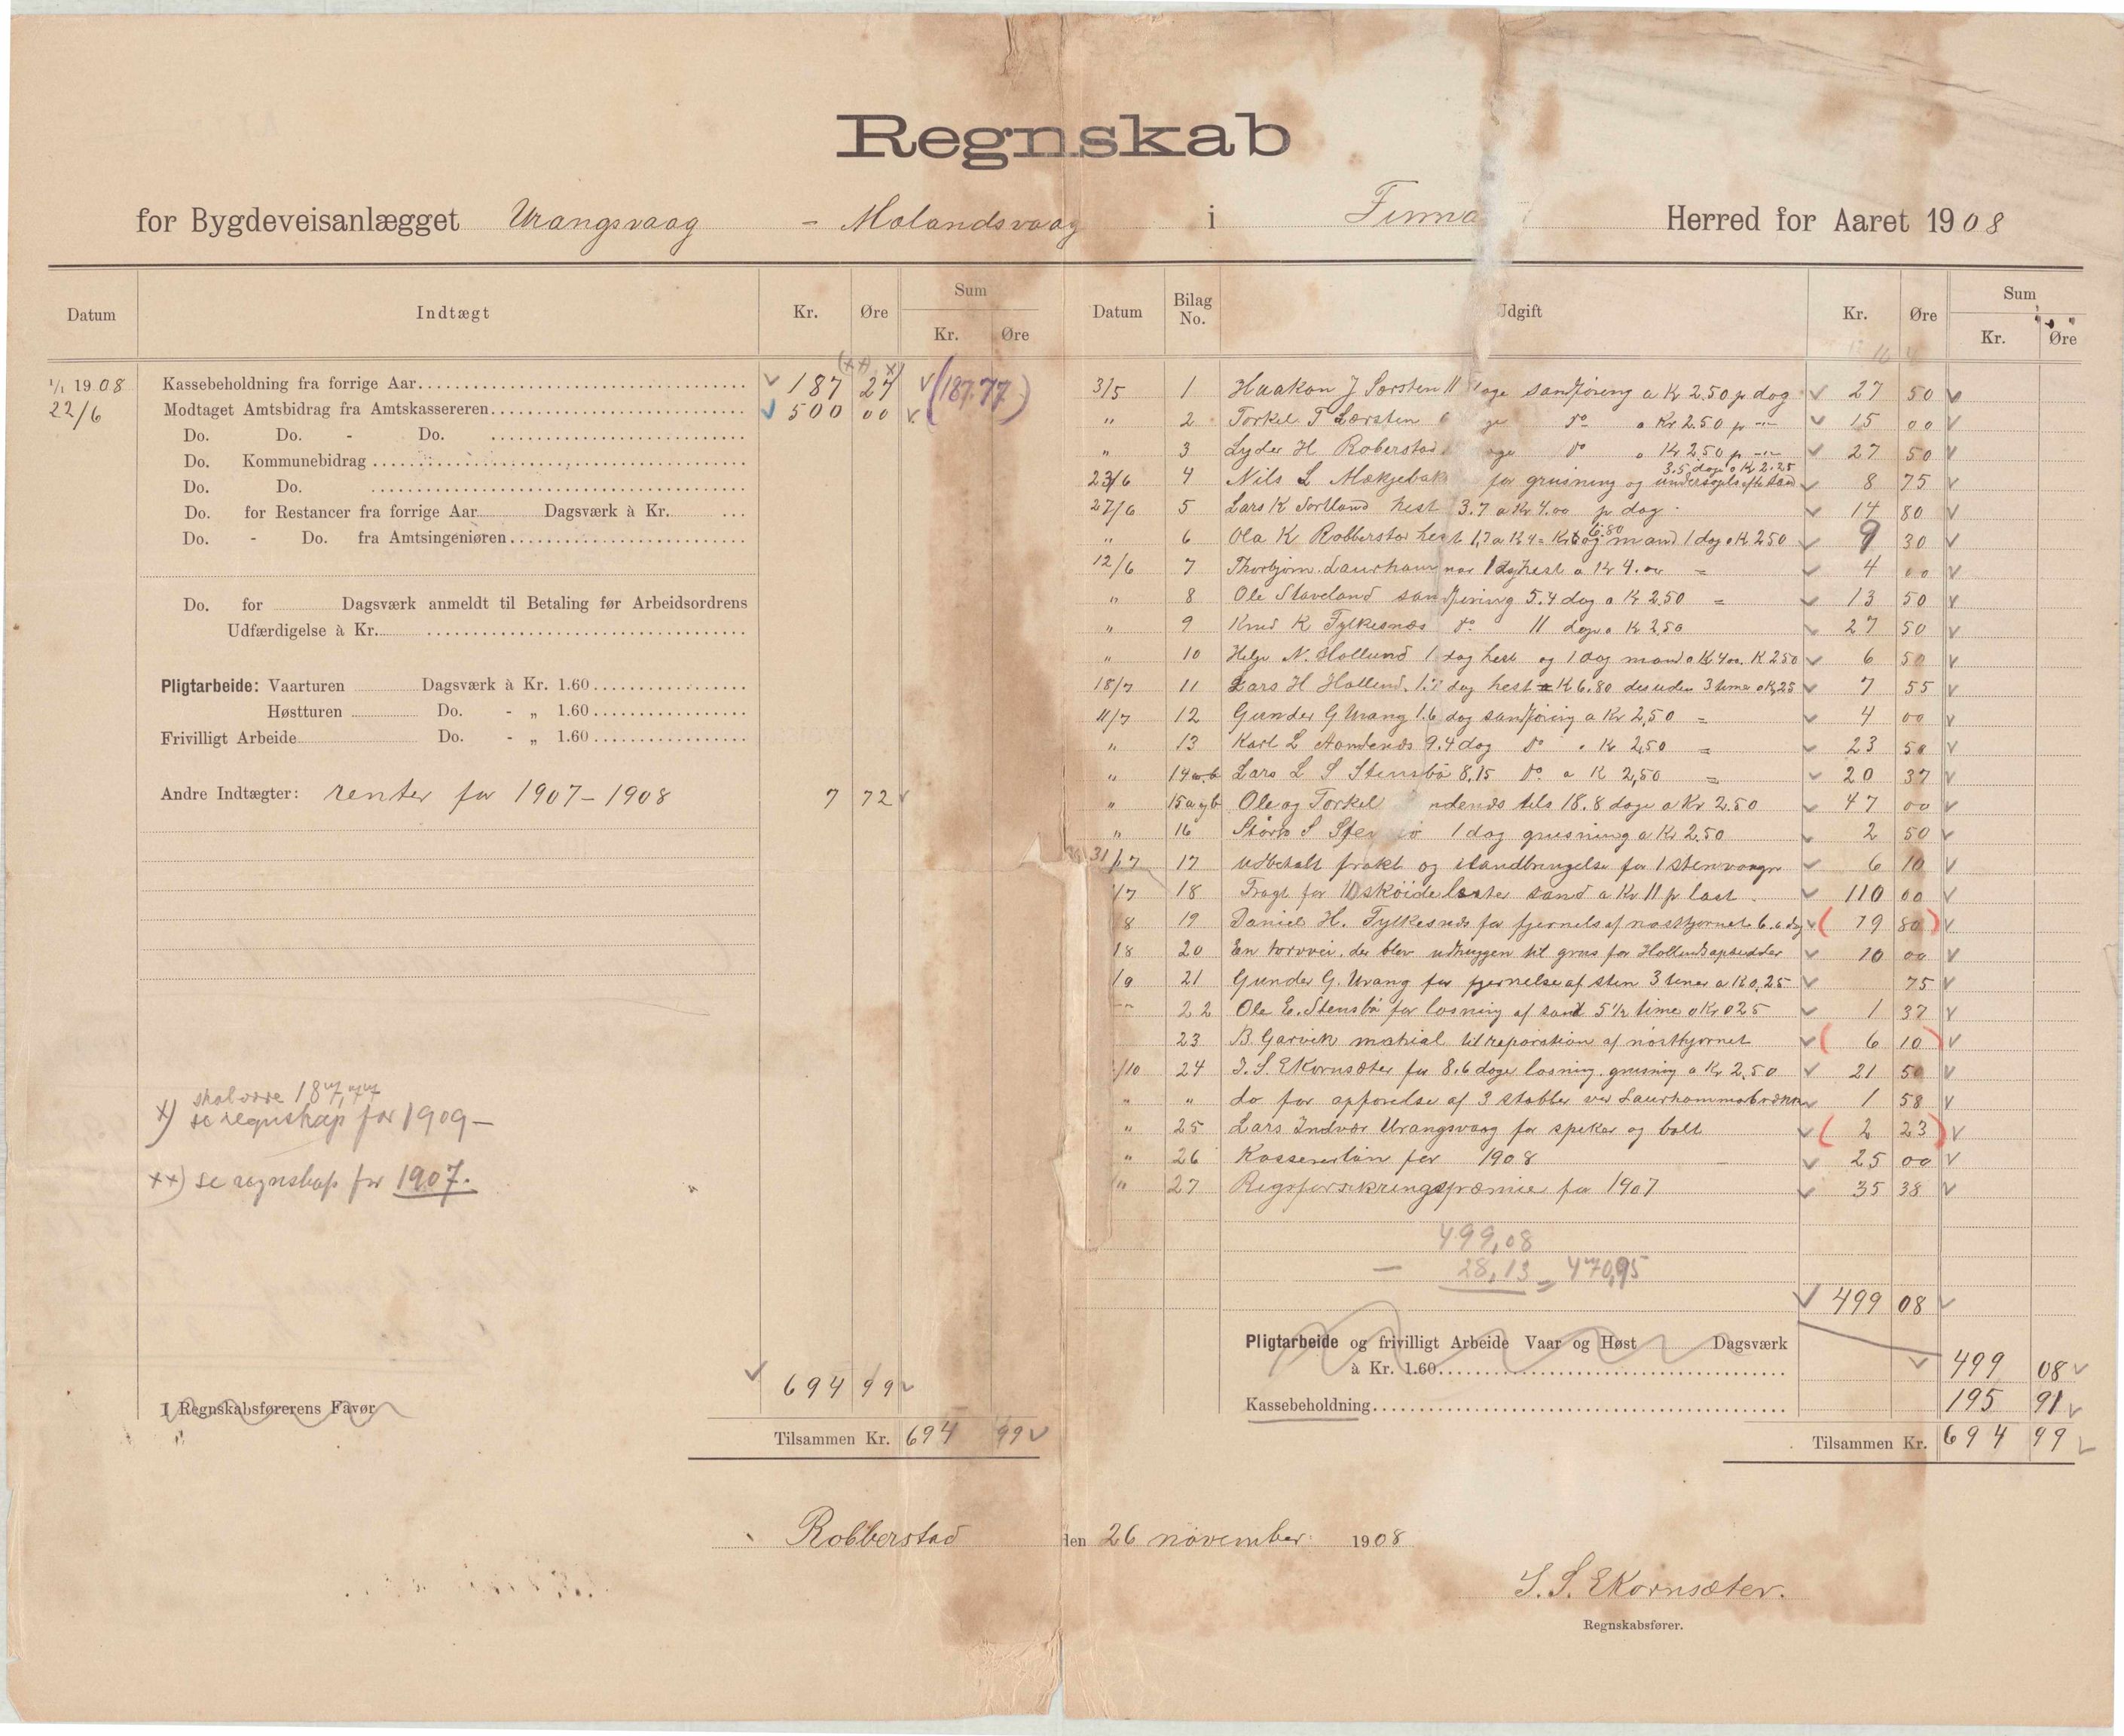 Regnskab
for Bygdeveisanlægget Urangsvaag - Molandsvaag i Finna Herred for Aaret 1908
Datum Indtægt Kr. Øre Sum Kr. Øre
1/1 1908 Kassebeholdning fra forrige Aar 187 27 (187.77)
22/6 Modtaget Amtsbidrag fra Amtskassereren 500 00
Do. Do. - Do.
Do. Kommunebidrag
Do. Do.
Do. for Restancer fra forrige Aar Dagsværk à Kr.
Do. - Do. fra Amtsingeniøren
Do. for Dagsværk anmeldt til Betaling før Arbeidsordrens
Udfærdigelse à Kr.
Pligtarbeide: Vaarturen Dagsværk à Kr. 1.60
Høstturen Do. - „ 1.60
Frivilligt Arbeide Do. - „ 1.60
Andre Indtægter: renter for 1907-1908 7 72
x) skal være 187,77
se regnskap for 1909-
xx) se regnskap for 1907.
694 99
I Regnskabsførerens Favør
Tilsammen Kr. 694 99
Datum Bilag No. Udgift Kr. Øre Sum Kr. Øre
3/5 1 Haakon J Sørsten 11 age sandkjøring a Kr 2.50 p dag 27 50
" 2 Torkel T Sørsten do a Kr 2.50 p -"- 15 00
" 3 Lyder H Roberstad do a Kr 2.50 p -"- 27 50
23/6 4 Nils L Mækjebak for grusning og undersøgels efter sand 3.5 dag a Kr 2.25 8 75
27/6 5 Lars K Sortland hest 3.7 a Kr 4.00 p dag 14 80
" 6 Ola K Robberstad hest 1,7 a Kr 4 = Kr 6.80 og mand 1 dag a Kr 2.50 9 30
12/6 7 Thorbjørn Laurhammar 1 dag hest a Kr 4.00 = 4 00
" 8 Ole Staveland sandkjøring 5.4 dag a Kr 2.50 = 13 50
" 9 Knud K Fylkesnæs do 11 dage a Kr 2.50 27 50
" 10 Helge N. Hollund 1 dag hest og 1 dag mand a Kr 4.00. K 2.50 6 50
18/7 11 Lars H Hollund. 1.7 dag hest a K 6.80 desuden 3 time a K,25 7 55
11/7 12 Gunder G Urang 1.6 dag sandkjøring a Kr 2,50 = 4 00
" 13 Karl L Aandenæs 9.4 dag do a Kr 2,50 = 23 50
" 14 a-b Lars L S Stensbø 8.15 do a K 2,50 = 20 37
" 15 a og b Ole og Torkel ndenæs tils 18.8 dage a Kr 2.50 47 00
" 16 S 1 dag grusning a Kr 2.50 2 50
31/7 17 Udbetalt frakt og ilandbringelse for 1 stenvogn 6 10
/7 18 Fragt for 10 skøidelaster sand a Kr 11 p last 110 00
8 19 Daniel H. Fylkesnæs for fjernels af nøsthjørnet 6.6 dag (19 80)
18 20 En torvvei, der blev udhuggen til grus for Hollundsopsidder 10 00
/9 21 Gunder G. Urang for fjernelse af sten 3 timer a K 0,25 75
22 Ole E. Stensbø for losning af sand 5 1/2 time a Kr 0 25 1 37
23 B. Garvik matrial til reparation af nøsthjørnet (6 10)
/10 24 I. S. Ekornsæter for 8.6 dage losning. grusning a Kr 2.50 21 50
" " do for opførelse af 3 stabber ved Laurhammarbrækken 1 58
" 25 Lars Indvær Urangsvaag for spiker og bolt (2 23)
" 26 Kassererløn for 1908 25 00
" 27 Rigsforsikringspræmie for 1907 35 38
499,08
- 28,13 = 470,95
499 08
Pligtarbeide og frivilligt Arbeide Vaar og Høst Dagsværk
à Kr. 1.60 499 08
Kassebeholdning 195 91
Tilsammen Kr. 694 99
Robberstad den 26 november 1908
I. S. Ekornsæter.
Regnskabsfører.